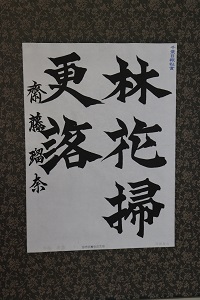 林花掃
更落
齋藤瑠奈